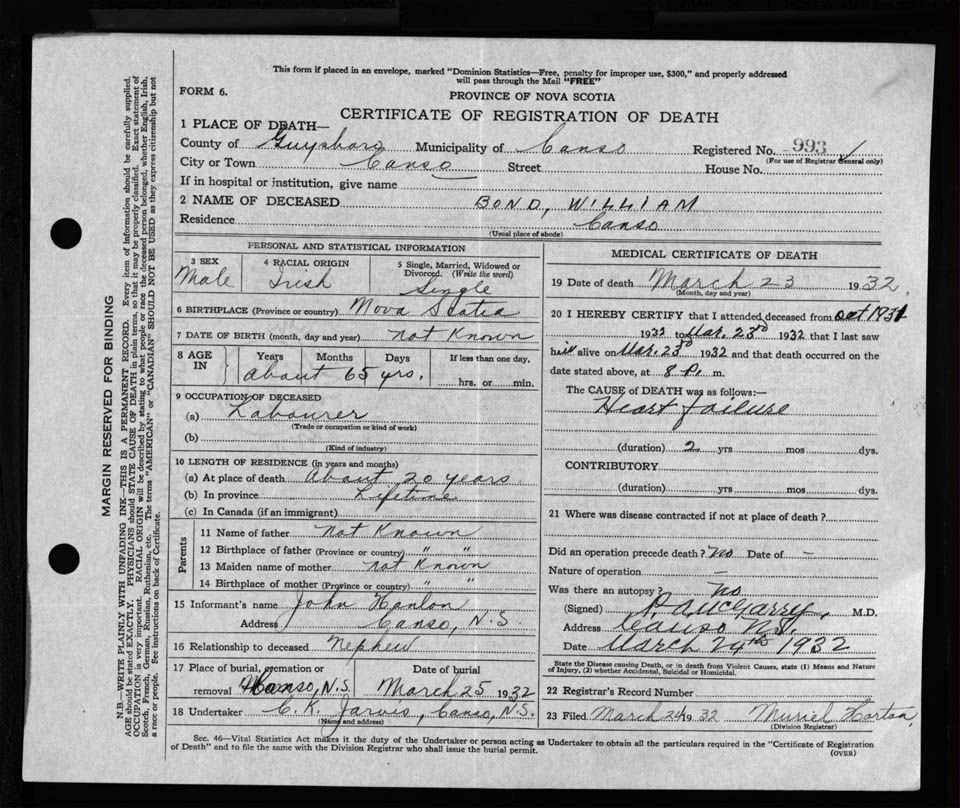 This form if placed in an envelope, marked "Dominion Statistics—Free, penalty for improper use, $300," and properly addressed
will pass through the Mail "FREE"
FORM 6.
PROVINCE OF NOVA SCOTIA
CERTIFICATE OF REGISTRATION OF DEATH
1 PLACE OF DEATH—
County of Guysboro Municipality of Canso Registered No. 993
(For use of Registrar General only)
City or Town Canso Street House No.
If in hospital or institution, give name
2 NAME OF DECEASED BOND, WILLIAM
Residence Canso
(Usual place of abode)
PERSONAL AND STATISTICAL INFORMATION
3 SEX 4 RACIAL ORIGIN 5 Single, Married, Widowed or
Divorced. (Write the word)
Male Irish Single
6 BIRTHPLACE (Province or country) Nova Scotia
7 DATE OF BIRTH (month, day and year) not Known
8 AGE IN Years Months Days If less than one day,
about 65 yrs. hrs. or min.
9 OCCUPATION OF DECEASED
(a) Labourer
(Trade or occupation or kind of work)
(b)
(Kind of industry)
10 LENGTH OF RESIDENCE (in years and months)
(a) At place of death About 20 years.
(b) In province Lifetime
(c) In Canada (if an immigrant)
Parents
11 Name of father not Known
12 Birthplace of father (Province or country) " "
13 Maiden name of mother not Known
14 Birthplace of mother (Province or country) " "
15 Informant's name John Hanlon
Address Canso, N.S.
16 Relationship to deceased Nephew
17 Place of burial, cremation or Date of burial
removal Canso, N.S. March 25 1932
18 Undertaker C. K. Jarvis, Canso, N.S.
(Name and address)
MEDICAL CERTIFICATE OF DEATH
19 Date of death March 23 1932
(Month, day and year)
20 I HEREBY CERTIFY that I attended deceased from Oct 1931
1932 to Mar. 23rd 1932 that I last saw
him alive on Mar. 23rd 1932 and that death occurred on the
date stated above, at 8 P. m.
The CAUSE OF DEATH was as follows:
Heart failure
(duration) 2 yrs mos dys.
CONTRIBUTORY
(duration) yrs mos dys.
21 Where was disease contracted if not at place of death?
Did an operation precede death? No Date of —
Nature of operation —
Was there an autopsy? No
(Signed) P. A. McGarry, M.D.
Address Canso N.S.
Date March 24th 1932
State the Disease causing Death, or in death from Violent Causes, state (1) Means and Nature
of Injury, (2) whether Accidental, Suicidal or Homicidal.
22 Registrar's Record Number
23 Filed March 24 1932 Muriel Horton
(Division Registrar)
Sec. 46—Vital Statistics Act makes it the duty of the Undertaker or person acting as Undertaker to obtain all the particulars required in the "Certificate of Registration
of Death" and to file the same with the Division Registrar who shall issue the burial permit.
(OVER)
MARGIN RESERVED FOR BINDING
N.B.—WRITE PLAINLY WITH UNFADING INK—THIS IS A PERMANENT RECORD. Every item of information should be carefully supplied.
AGE should be stated EXACTLY. PHYSICIANS should STATE CAUSE OF DEATH in plain terms, so that it may be properly classified. Exact statement of
OCCUPATION is very important. RACIAL ORIGIN will be described by stating to what people or race the deceased person belonged, whether English, Irish,
Scotch, French, German, Russian, Ruthenian, etc. The terms "AMERICAN" or "CANADIAN" SHOULD NOT BE USED as they express citizenship but not
a race or people. See instructions on back of Certificate.